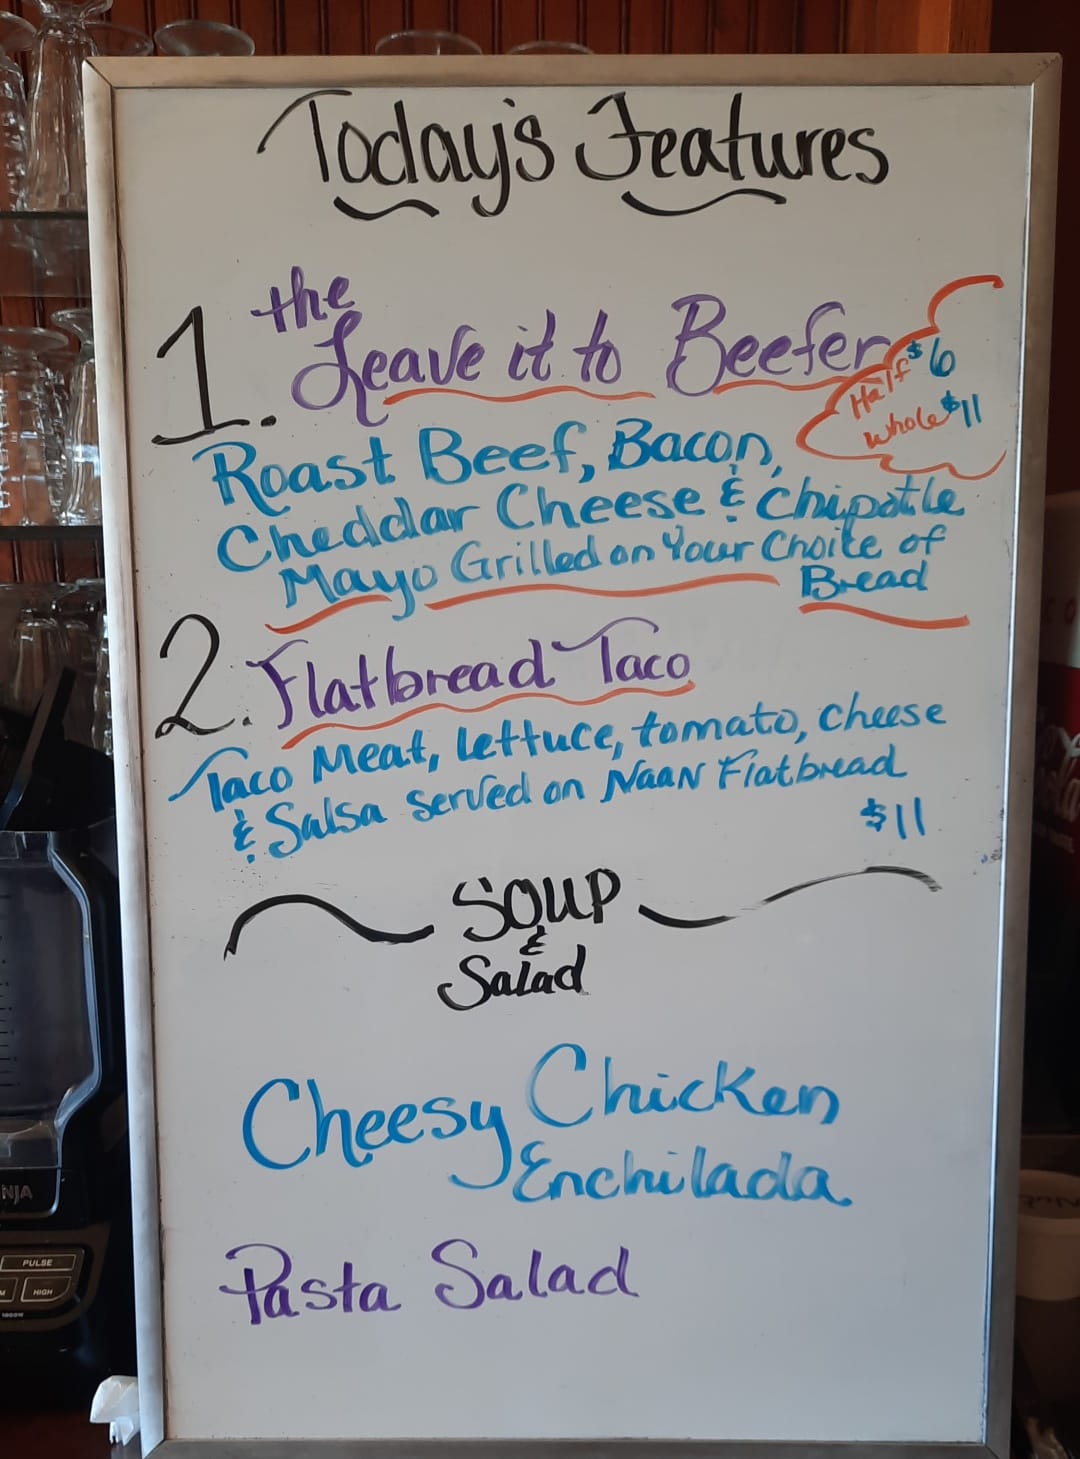 Today's Features
1. the
Leave it to Beefer
Half $6
Whole $11
Roast Beef, Bacon,
Cheddar Cheese & Chipotle
Mayo Grilled on Your Choice of
Bread
2. Flatbread Taco
Taco Meat, lettuce, tomato, cheese
& Salsa served on Naan Flatbread
$11
Soup
&
Salad
Cheesy Chicken
Enchilada
Pasta Salad
NJA
PULSE
HIGH